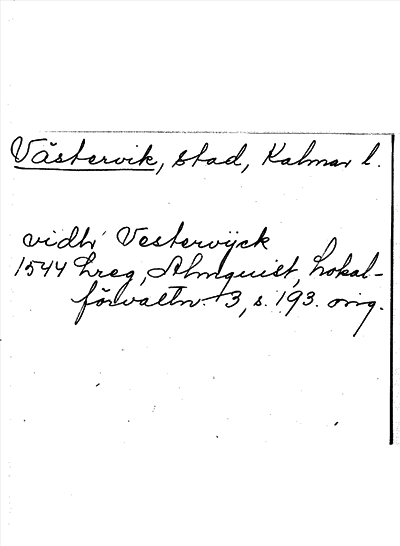 Västervik, stad, Kalmar l.
vidh Vesterwijck
1544 Lreg, Almquist, Lokal-
förvaltn. 3, s. 193. orig.